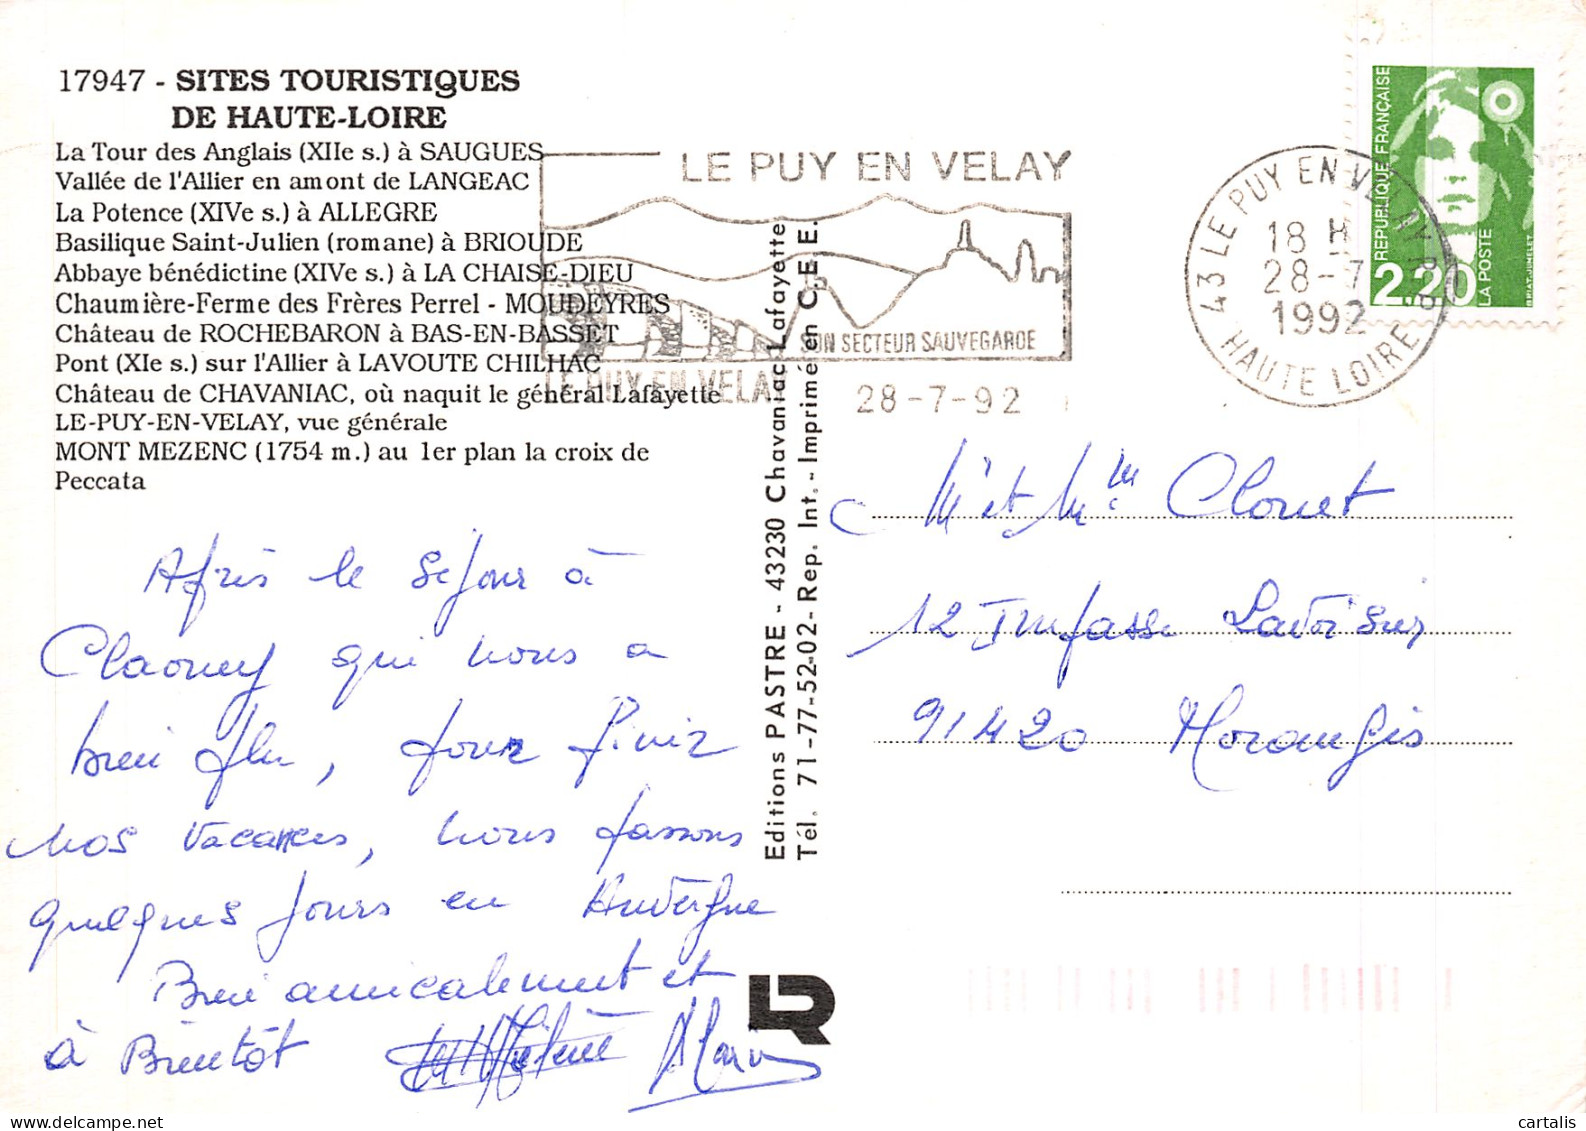 17947 - SITES TOURISTIQUES
DE HAUTE-LOIRE
La Tour des Anglais (XIIe s.) à SAUGUES
Vallée de l'Allier en amont de LANGEAC
La Potence (XIVe s.) à ALLEGRE
Basilique Saint-Julien (romane) à BRIOUDE
Abbaye bénédictine (XIVe s.) à LA CHAISE-DIEU
Chaumière-Ferme des Frères Perrel - MOUDEYRES
Château de ROCHEBARON à BAS-EN-BASSET
Pont (XIe s.) sur l'Allier à LAVOUTE CHILHAC
Château de CHAVANIAC, où naquit le général Lafayette
LE-PUY-EN-VELAY, vue générale
MONT MEZENC (1754 m.) au 1er plan la croix de
Peccata
Après le séjour à
Claouey qui nous a
bien plu, pour finir
nos vacances, nous passons
quelques jours en Auvergne
Bien amicalement et
à Bientôt
Editions PASTRE - 43230 Chavaniac Lafayette
Tél. 71-77-52-02 - Rep. Int. - Imprimé en C.E.E.
LE PUY EN VELAY
SON SECTEUR SAUVEGARDE
LE PUY EN VELAY
28-7-92
43 LE PUY EN VELAY R.P.
18 H
28-7
1992
HAUTE LOIRE
REPUBLIQUE FRANÇAISE
2.20
LA POSTE
BRIAT-JUMELET
Mr et Mme Clouet
12 Impasse Lavoisier
91420 Morangis
LR
cartalis